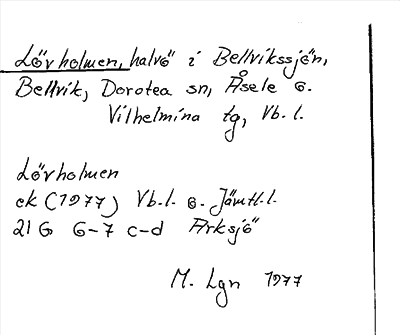 Lövholmen, halvö i Bellvikssjön,
Bellvik, Dorotea sn, Åsele o.
Vilhelmina tg, Vb. l.
Lövholmen
ek (1977) Vb. l. o. Jämtl. l.
21G 6-7 c-d Arksjö
M. Lgn 1977